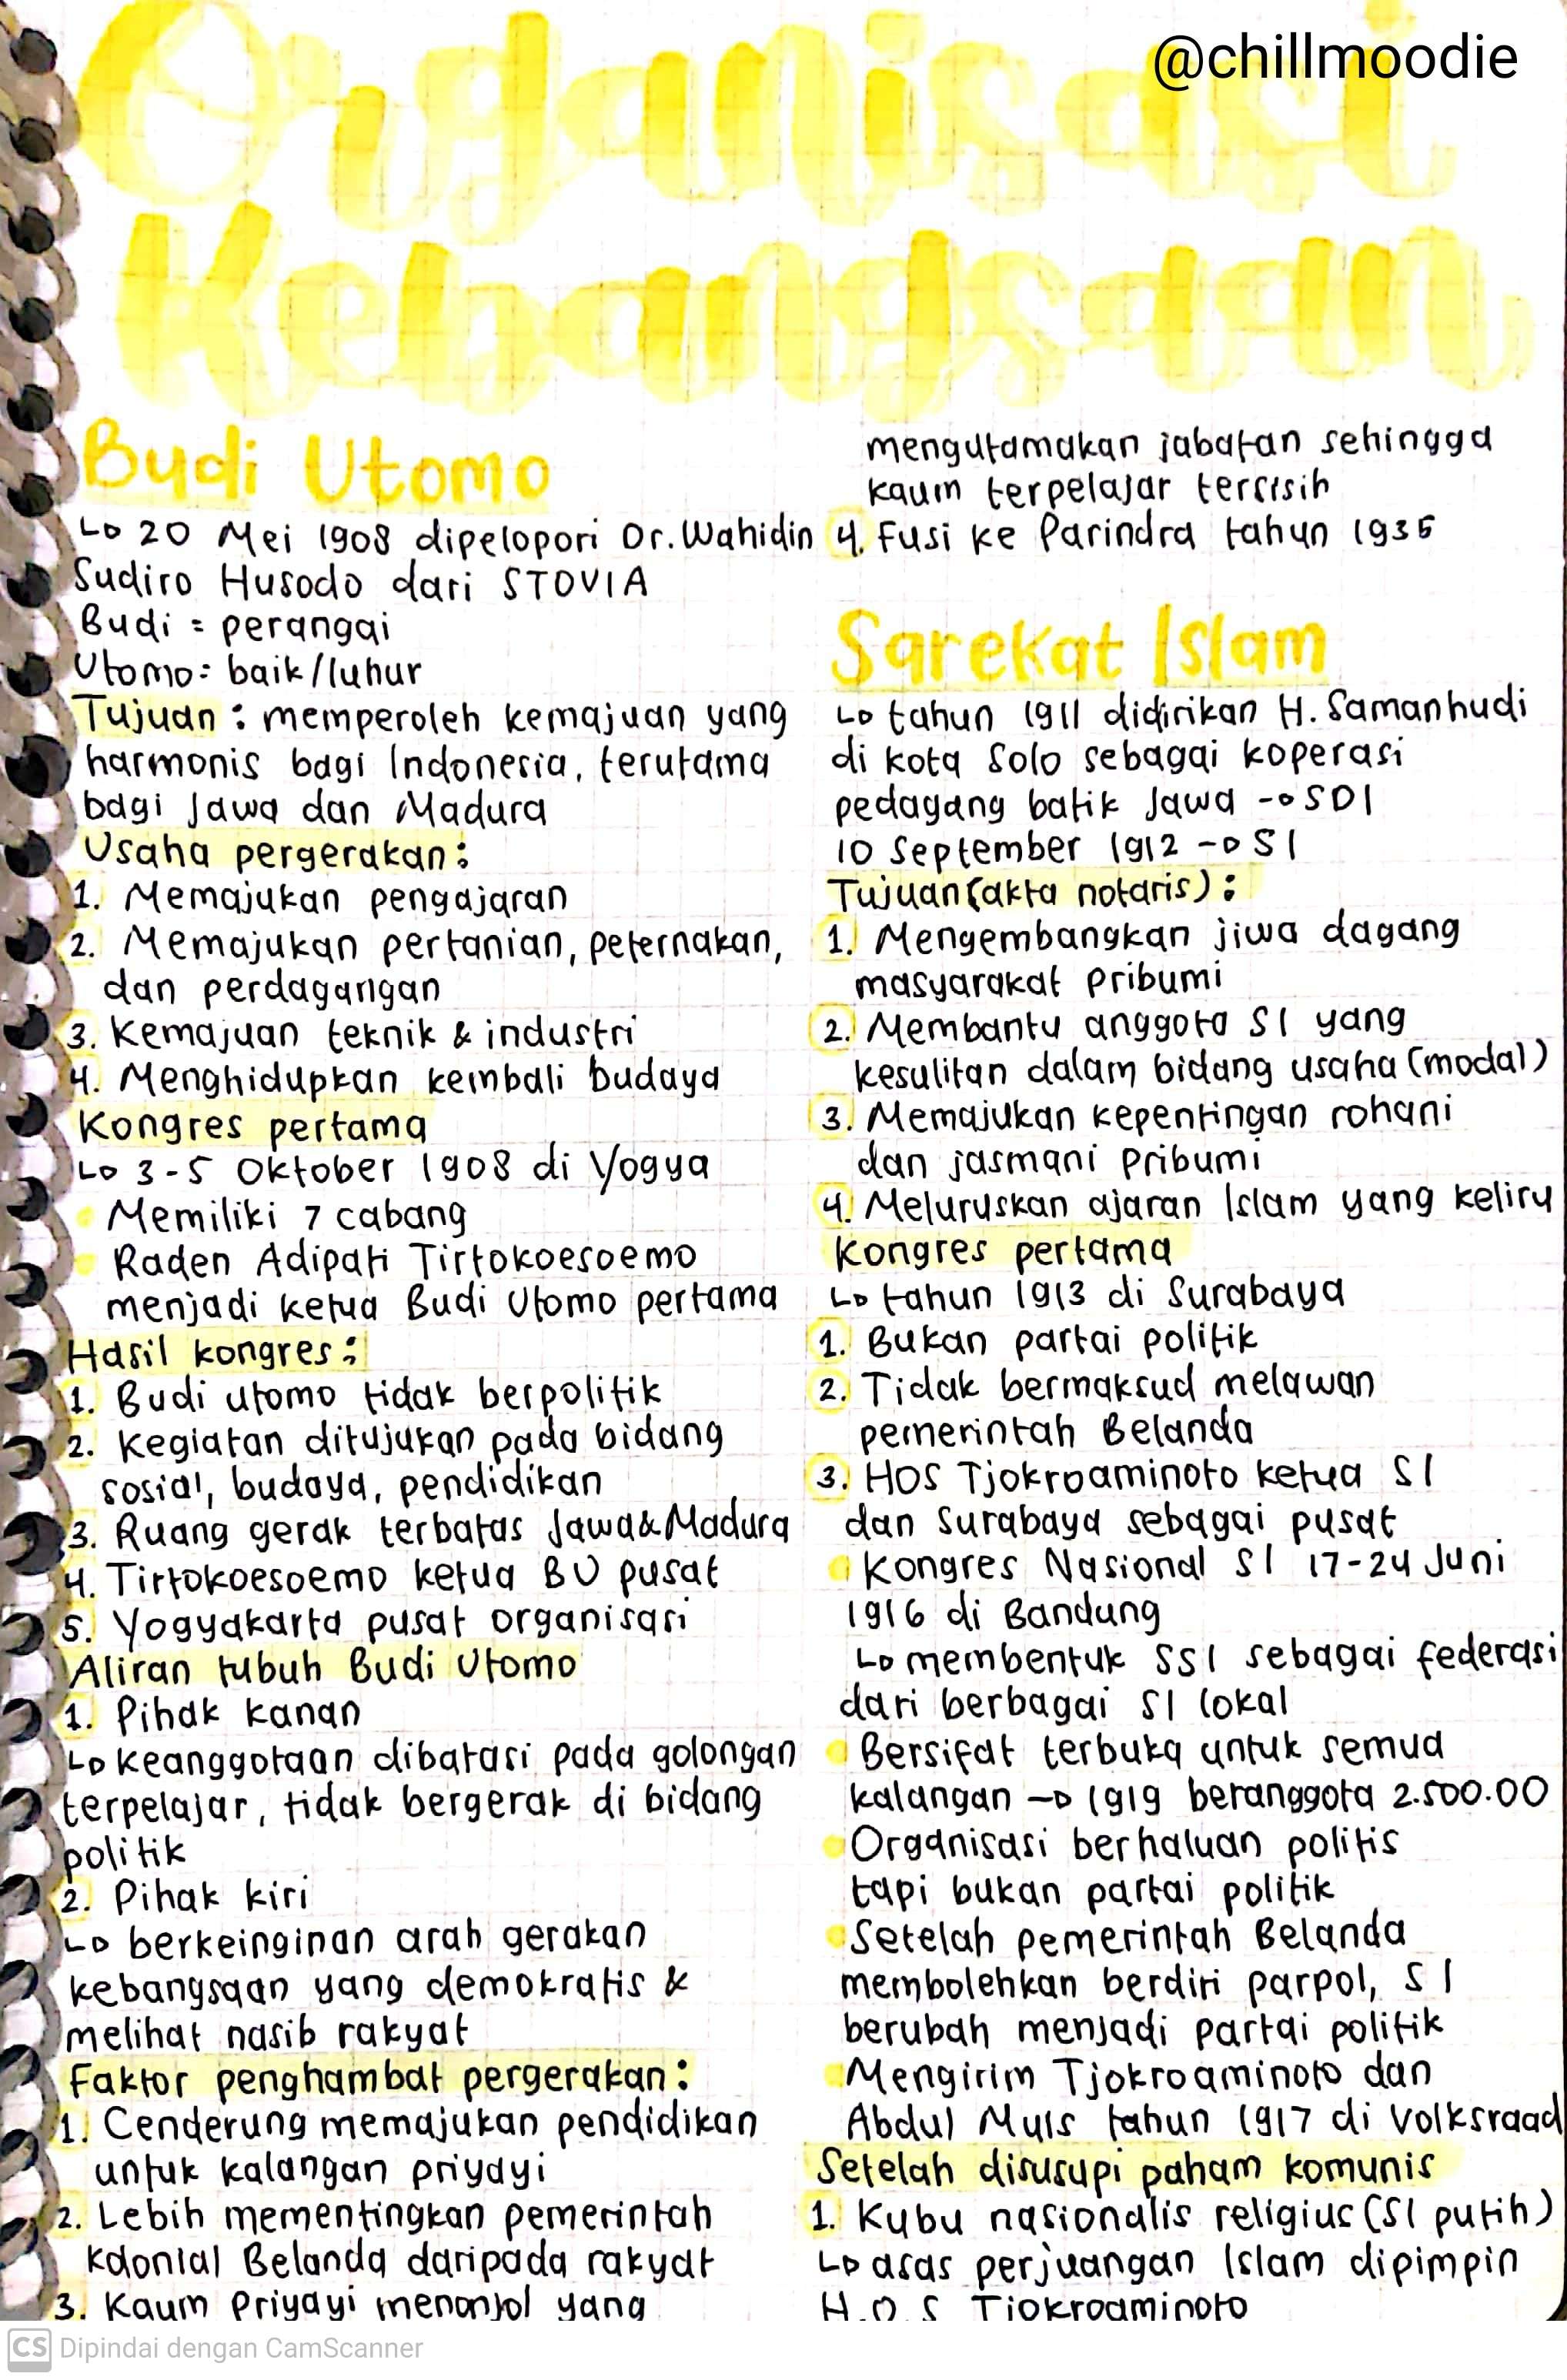 @chillmoodie
Organisasi
Kebangsaan
Budi Utomo
↳ 20 Mei 1908 dipelopori Dr. Wahidin
Sudiro Husodo dari STOVIA
Budi = perangai
Utomo = baik/luhur
Tujuan : memperoleh kemajuan yang
harmonis bagi Indonesia, terutama
bagi Jawa dan Madura
Usaha pergerakan :
1. Memajukan pengajaran
2. Memajukan pertanian, peternakan,
dan perdagangan
3. Kemajuan teknik & industri
4. Menghidupkan kembali budaya
Kongres pertama
↳ 3-5 Oktober 1908 di Yogya
• Memiliki 7 cabang
• Raden Adipati Tirtokoesoemo
menjadi ketua Budi Utomo pertama
Hasil kongres :
1. Budi utomo tidak berpolitik
2. Kegiatan ditujukan pada bidang
sosial, budaya, pendidikan
3. Ruang gerak terbatas Jawa & Madura
4. Tirtokoesoemo ketua BU pusat
5. Yogyakarta pusat organisasi
Aliran tubuh Budi Utomo
1. Pihak kanan
↳ keanggotaan dibatasi pada golongan
terpelajar, tidak bergerak di bidang
politik
2. Pihak kiri
↳ berkeinginan arah gerakan
kebangsaan yang demokratis &
melihat nasib rakyat
Faktor penghambat pergerakan :
1. Cenderung memajukan pendidikan
untuk kalangan priyayi
2. Lebih mementingkan pemerintah
kolonial Belanda daripada rakyat
3. Kaum Priyayi menonjol yang
mengutamakan jabatan sehingga
kaum terpelajar tersisih
4. Fusi ke Parindra tahun 1935
Sarekat Islam
↳ tahun 1911 didirikan H. Samanhudi
di kota Solo sebagai koperasi
pedagang batik Jawa → SDI
10 September 1912 → SI
Tujuan (akta notaris) :
1. Mengembangkan jiwa dagang
masyarakat pribumi
2. Membantu anggota SI yang
kesulitan dalam bidang usaha (modal)
3. Memajukan kepentingan rohani
dan jasmani pribumi
4. Meluruskan ajaran Islam yang keliru
Kongres pertama
↳ tahun 1913 di Surabaya
1. Bukan partai politik
2. Tidak bermaksud melawan
pemerintah Belanda
3. HOS Tjokroaminoto ketua SI
dan Surabaya sebagai pusat
• Kongres Nasional SI 17-24 Juni
1916 di Bandung
↳ membentuk SSI sebagai federasi
dari berbagai SI lokal
• Bersifat terbuka untuk semua
kalangan → 1919 beranggota 2.500.00
• Organisasi berhaluan politis
tapi bukan partai politik
• Setelah pemerintah Belanda
membolehkan berdiri parpol, SI
berubah menjadi partai politik
• Mengirim Tjokroaminoto dan
Abdul Muis tahun 1917 di Volksraad
Setelah disusupi paham komunis
1. Kubu nasionalis religius (SI putih)
↳ asas perjuangan Islam dipimpin
H.O.S Tjokroaminoto
CS Dipindai dengan CamScanner